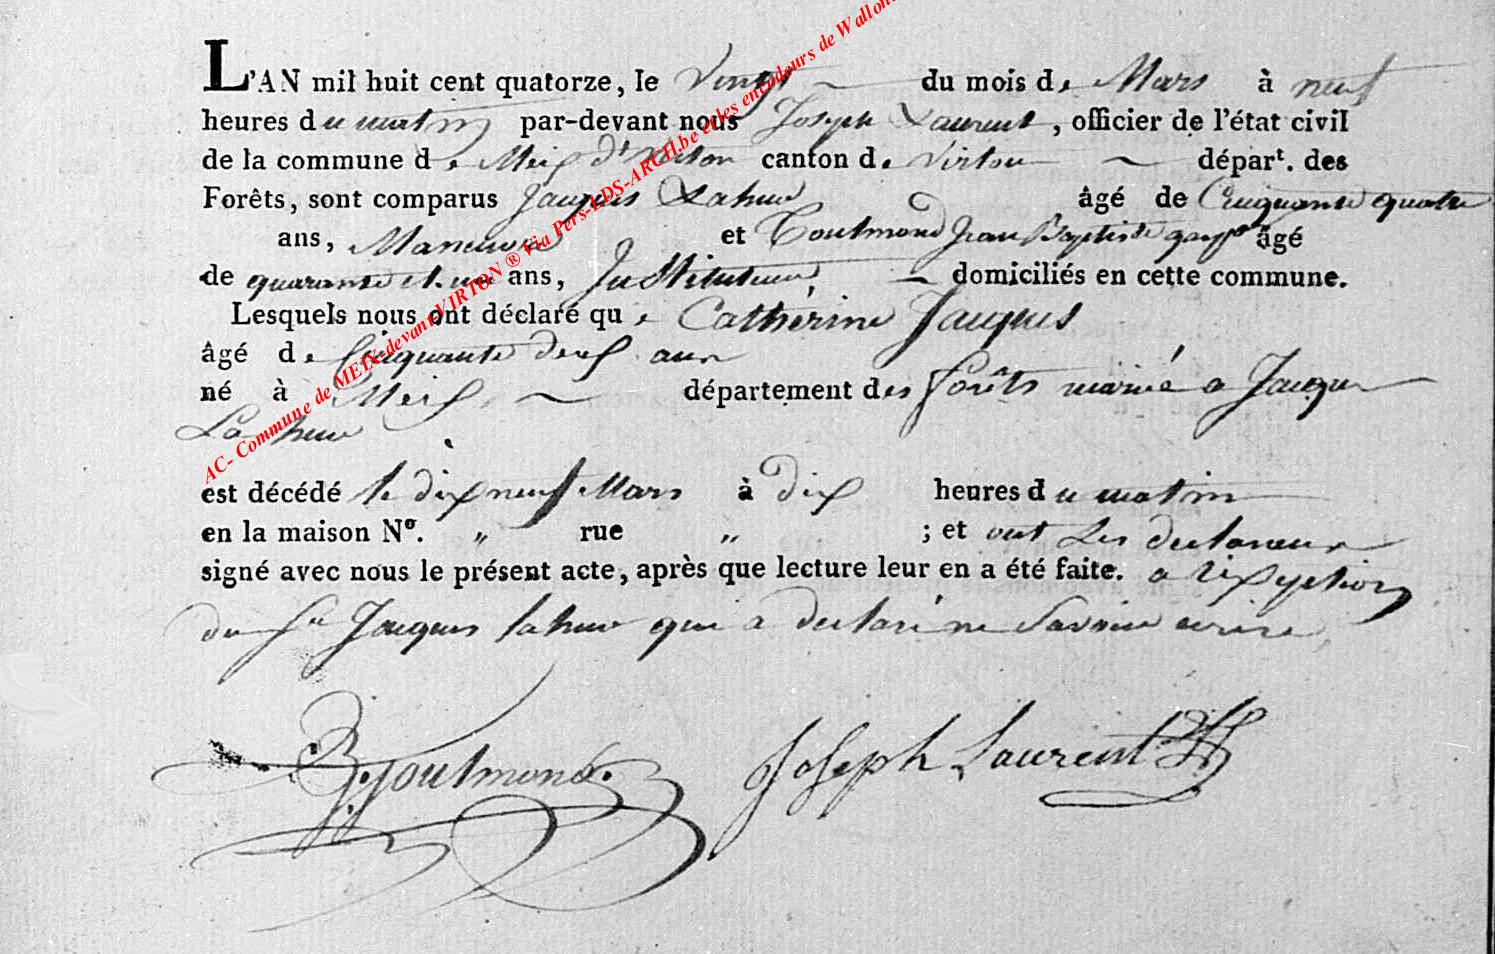 L'AN mil huit cent quatorze, le Vingt du mois de Mars à neuf
heures du matin par-devant nous Joseph Laurent, officier de l'état civil
de la commune de Meix dt Virton canton de Virton départ. des
Forêts, sont comparus Jacques Lahure âgé de Cinquante quatre
ans, Maneuvre et Goutmond Jean Baptiste âgé
de quarante et un ans, Instituteur, domiciliés en cette commune.
Lesquels nous ont déclaré que Catherine Jacques
âgé de Cinquante deux ans
né à Meix, département des forêts mariée a Jacque
Lahure
est décédé le dix neuf Mars à dix heures du matin
en la maison No. " rue " ; et ont Les declarans
signé avec nous le présent acte, après que lecture leur en a été faite. a l'exseption
du Sr Jacques lahure qui a declaré ne Savoir ecrire,
Joseph Laurent
AC- Commune de MEIX-devant-VIRTON ® Via Pers-LDS-ARCH.be et les encodeurs de Wallon